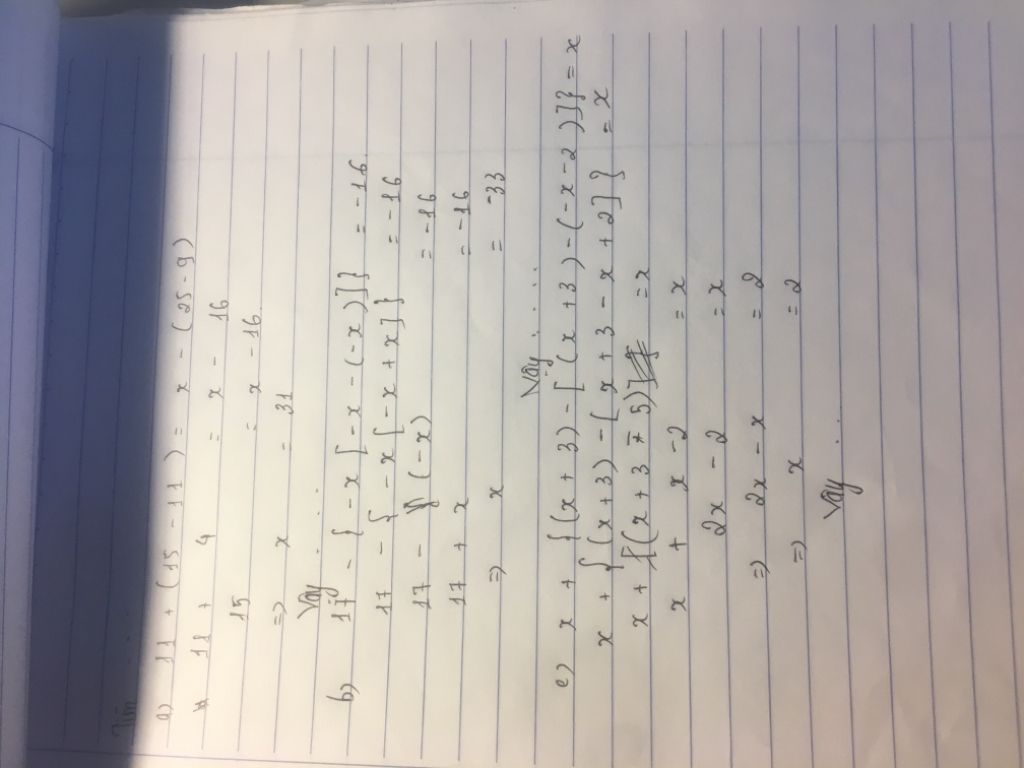 Tìm
a) 11 + (15 - 11) = x - (25 - 9)
11 + 4 = x - 16
15 = x - 16
=> x = 31
Vậy . . .
b) 17 - { - x [ - x - (-x) ] } = -16
17 - { - x [ - x + x ] } = -16
17 - (-x) = -16
17 + x = -16
=> x = -33
Vậy . . . .
c) x + { (x + 3) - [ (x + 3) - (-x - 2) ] } = x
x + { (x + 3) - [ x + 3 - x + 2 ] } = x
x + [ (x + 3 - 5) ] = x
x + x - 2 = x
2x - 2 = x
=> 2x - x = 2
=> x = 2
Vậy . . .